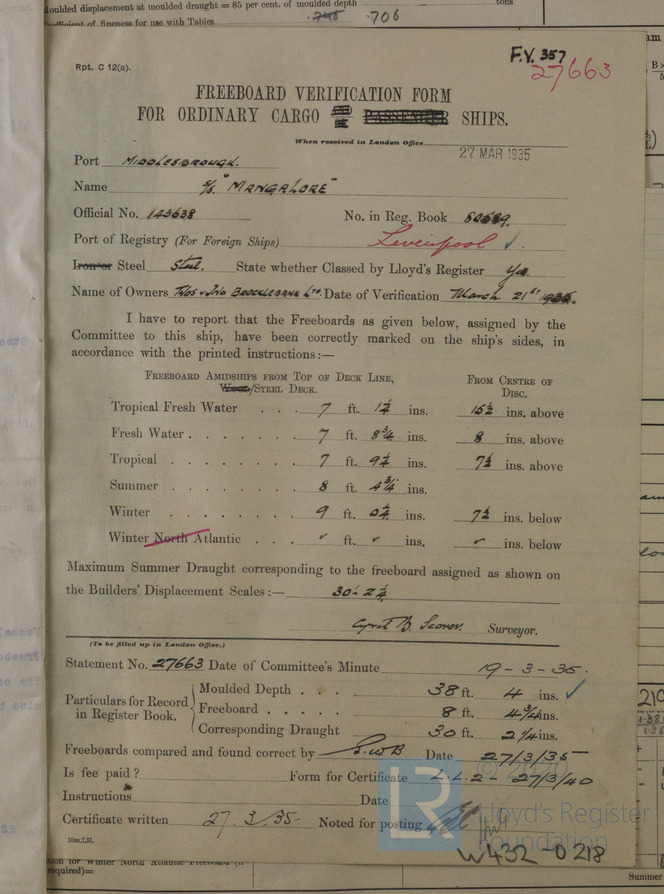 Moulded displacement at moulded draught = 85 per cent. of moulded depth tons
Coefficient of fineness for use with Tables .706
Rpt. C 12(a).
F.V. 357
27663
FREEBOARD VERIFICATION FORM
FOR ORDINARY CARGO AND PASSENGER SHIPS.
When received in London Office
27 MAR 1935
Port MIDDLESBROUGH.
Name S/S "MANGALORE"
Official No. 143638 No. in Reg. Book
Port of Registry (For Foreign Ships) Liverpool
Iron or Steel Steel. State whether Classed by Lloyd's Register Yes
Name of Owners THOS & JNO BROCKLEBANK LTD. Date of Verification March 21st 1935.
I have to report that the Freeboards as given below, assigned by the
Committee to this ship, have been correctly marked on the ship's sides, in
accordance with the printed instructions:—
FREEBOARD AMIDSHIPS FROM TOP OF DECK LINE,
WOOD/STEEL DECK.
FROM CENTRE OF
DISC.
Tropical Fresh Water . . . 7 ft. 1¼ ins. 15½ ins. above
Fresh Water . . . . . . 7 ft. 8¾ ins. 8 ins. above
Tropical . . . . . . . 7 ft. 9¼ ins. 7½ ins. above
Summer . . . . . . . 8 ft. 4¾ ins.
Winter . . . . . . . 9 ft. 0¼ ins. 7½ ins. below
Winter North Atlantic . . . ✓ ft. ✓ ins. ✓ ins. below
Maximum Summer Draught corresponding to the freeboard assigned as shown on
the Builders' Displacement Scales:— 30-2¼
Cyril B. Surveyor.
(To be filled up in London Office.)
Statement No. 27663 Date of Committee's Minute 19-3-35.
Particulars for Record
in Register Book.
Moulded Depth . . . 38 ft. 4 ins. ✓
Freeboard . . . . . 8 ft. 4¾ ins.
Corresponding Draught 30 ft. 2¼ ins.
Freeboards compared and found correct by Date 27/3/35
Is fee paid? Form for Certificate L.L.2- 27/3/40
Instructions Date
Certificate written 27.3.35- Noted for posting
10m,7,31.
LR
© 2020
Lloyd's Register
Foundation
W432-0218
for Winter North Atlantic Freeboard (if
required)=
Summer